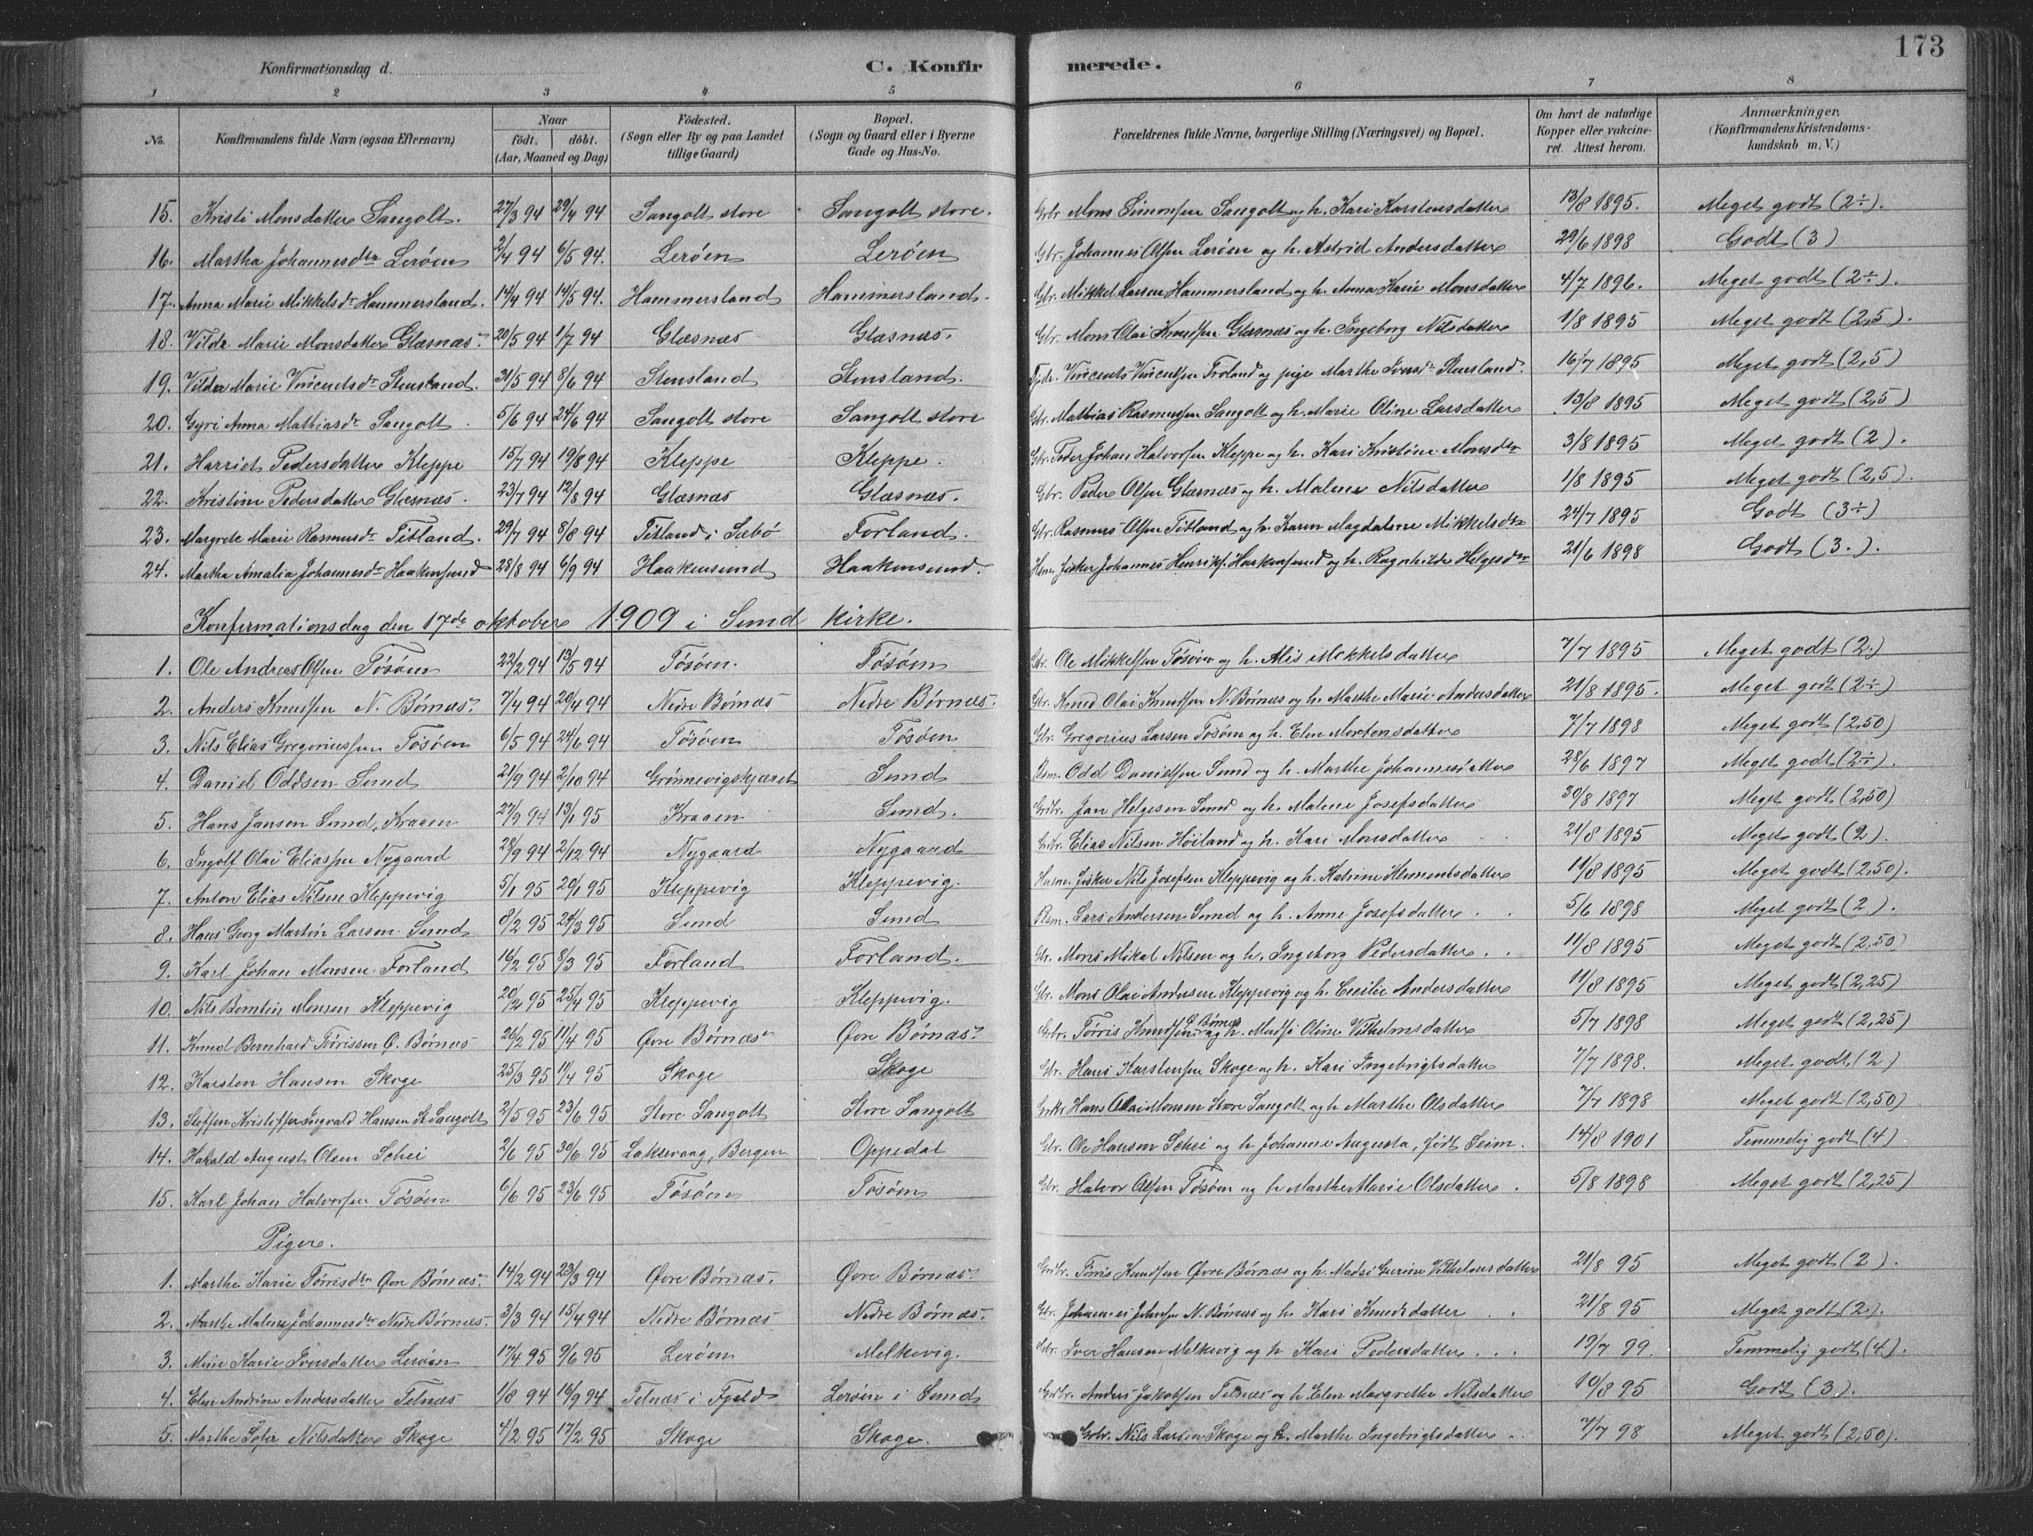 173
Konfirmationsdag d. C. Konfirmerede.
1 2 3 4 5 6 7 8
No. Konfirmandens fulde Navn (ogsaa Efternavn) Naar födt. döbt. (Aar, Maaned og Dag) Födested. (Sogn eller By og paa Landet tillige Gaard) Bopæl. (Sogn og Gaard eller i Byerne Gade og Hus-No. Forældrenes fulde Navne, borgerlige Stilling (Næringsvei) og Bopæl. Om havt de naturlige Kopper eller vakcineret. Attest herom. Anmærkninger. (Konfirmandens Kristendomskundskab m. V.)
15. Kristi Monsdatter Sangolt. 27/3 94 29/4 94 Sangolt store Sangolt store. Gbr. Mons Simonsen Sangolt og h. Kari Karstensdatter 13/8 1895. Meget godt (2÷).
16. Martha Johannesdtr Lerøen 2/4 94 6/5 94. Lerøen Lerøen Gbr. Johannes Olsen Lerøen og h. Astrid Andersdatter 29/6 1898 Godt (3)
17. Anna Marie Mikkelsdr Hammersland. 14/4 94 14/5 94. Hammersland Hammersland. Gbr. Mikkel Larsen Hammersland og h. Anna Karie Monsdatter 4/7 1896. Meget godt (2÷).
18. Vilda Marie Monsdatter Glæsnæs. 20/5 94 1/7 94 Glæsnæs Glæsnæs. Gbr. Mons Olai Knutsen Glæsnæs og h. Ingeborg Nilsdatter 1/8 1895 Meget godt (2,5).
19. Vilda Marie Vincentsdr Stensland. 31/5 94 8/6 94 Stensland Stensland. Vincents Vincentsen Froland og pige Marthe Iversdr Stensland. 16/7 1895 Meget godt (2,5)
20. Gyri Anna Mathiasdr Sangolt 5/6 94 24/6 94 Sangolt store Sangolt store Gbr. Mathias Rasmussen Sangolt og h. Marie Oline Larsdatter 13/8 1895 Meget godt (2,5)
21. Harriet Pedersdatter Kleppe 15/7 94 19/8 94 Kleppe Kleppe. Gbr. Peder Johan Halvorsen Kleppe og h. Kari Kristine Monsdtr 3/8 1895 Meget godt (2).
22. Kristine Pedersdatter Glæsnæs. 23/7 94 12/8 94 Glæsnæs Glæsnæs. Gbr. Peder Olsen Glæsnæs og h. Malena Nilsdatter 1/8 1895 Meget godt (2,5).
23. Margrete Marie Rasmusdr Titland. 29/7 94 8/8 94 Titland i Sæbø Forland. Gbr. Rasmus Olsen Titland og h. Karen Magdalene Mikkelsdtr 24/7 1895 Godt (3÷)
24. Martha Amalia Johannesdr Haakensund 28/8 94 6/9 94 Haakensund Haakensund. Hsm. fisker Johannes Henriks. Haakensund og h. Ragnhilda Helgesdtr 21/6 1898 Godt (3.).
Konfirmationsdag den 17de oktober 1909 i Sund kirke.
1. Ole Andreas Olsen Tøsøen 22/2 94 13/5 94 Tøsøen. Tøsøen Gbr. Ole Mikkelsen Tøsøen og h. Alis Mikkelsdatter 7/7 1895 Meget godt (2.)
2. Anders Knutsen N. Børnæs. 7/4 94 29/4 94 Nedre Børnæs Nedre Børnæs. Gbr. Knud Olai Knudsen N. Børnæs og h. Marthe Marie Andersdatter 21/8 1895. Meget godt (2÷)
3. Nils Elias Gregoriussen Tøsøen 6/5 94 24/6 94 Tøsøen Tøsøen Gbr. Gregorius Larsen Tøsøen og h. Elen Mortensdatter 7/7 1898 Meget godt (2,50)
4. Daniel Oddsen Sund 21/9 94 2/10 94 Grønnevigskjæret Sund Psm. Odd Danielsen Sund og h. Marthe Johannesdatter 28/6 1897 Meget godt (2÷).
5. Hans Jansen Sund, Kraaen 27/9 94 13/1 95 Kraaen Sund. Grbr. Jan Helgesen Sund og h. Malene Josefsdatter 30/8 1897 Meget godt (2,50)
6. Ingolf Olai Eliassen Nygaard 28/9 94 2/12 94 Nygaard Nygaard Grbr. Elias Nilsen Høiland og h. Kari Monsdatter 21/8 1895 Meget godt (2).
7. Anton Elias Nilsen Kleppevig 5/1 95 20/1 95 Kleppevig Kleppevig. Husm. fisker Nils Josefsen Kleppevig og h. Katrine Klementsdatter 11/8 1895 Meget godt (2,50).
8. Hans Georg Martin Larsen Sund 8/2 95 24/3 95 Sund Sund Psm. Lars Andersen Sund og h. Anne Josefsdatter 5/6 1898 Meget godt (2).
9. Karl Johan Monsen Forland 16/2 95 8/3 95 Forland Forland. Gbr. Mons Mikal Nilsen og h. Ingeborg Pedersdatter 11/8 1895 Meget godt (2,50)
10. Nils Bomtin Monsen Kleppevig 20/2 95 25/4 95 Kleppevig Kleppevig. Gbr. Mons Olai Andersen Kleppevig og h. Cecilie Andersdatter 11/8 1895 Meget godt (2,25)
11. Knud Bernhard Tørrissen Ø. Børnæs 26/2 95 11/4 95 Øvre Børnæs Øvre Børnæs Grbr. Tørris Knudsen Ø. Børnæs og h. Madsi Oline Vilhelmsdatter 5/7 1898 Meget godt (2,25)
12. Karsten Hansen Skoge 25/3 95 11/4 95 Skoge Skoge Gbr. Hans Karstensen Skoge og h. Kari Ingebrigtsdatter 7/7 1898. Meget godt (2)
13. Steffen Kristoffer Ingvald Hansen St. Sangolt 2/5 95 23/6 95 Store Sangolt Store Sangolt Hans Olai Monsen Store Sangolt og h. Marthe Olsdatter 7/7 1898 Meget godt (2,50)
14. Harald August Olsen Schei 2/6 95 30/6 95 Laksevaag, Bergen Oppedal Gbr. Ole Hansen Schei og h. Johanne Augusta, født Seim. 14/8 1901 Temmelig godt (4)
15. Karl Johan Halvorsen Tøsøen 6/6 95 23/6 95 Tøsøen Tøsøen Gbr. Halvor Olsen Tøsøen og h Marthe Marie Olsdatter. 5/8 1898 Meget godt (2,25)
Piger.
1. Marthe Karie Tørrisdtr Øvre Børnæs. 14/2 94 23/3 94 Øvre Børnæs. Øvre Børnæs Grbr. Tørris Knudsen Øvre Børnæs og h. Madsi Vilhelmsdatter 21/8 95 Meget godt (2).
2. Marthe Malene Johannesdtr Nedre Børnæs. 3/3 94 15/4 94 Nedre Børnæs Nedre Børnæs. Gbr. Johannes Johnsen N. Børnæs og h. Kari Knudsdatter 21/8 95 Meget godt (2.).
3. Mine Karie Iversdatter Lerøen 17/4 95 9/6 95 Lerøen Melkevig. Gbr. Iver Hansen Melkevig og h Kari Pedersdatter 19/7 99. Temmelig godt (4).
4. Elen Andrine Andersdatter Telnæs 1/8 94 16/9 94 Telnæs i Fjeld Lerøen i Sund Grbr. Anders Jakobsen Telnæs og h Elen Margrethe Nilsdatter 10/8 95 Godt (3).
5. Marthe Sofie Nilsdatter Skoge 4/2 95 17/2 95 Skoge Skoge. Grbr. Nils Larsen Skoge og h. Marthe Ingebrigtsdatter 7/7 98 Meget godt (2,50).